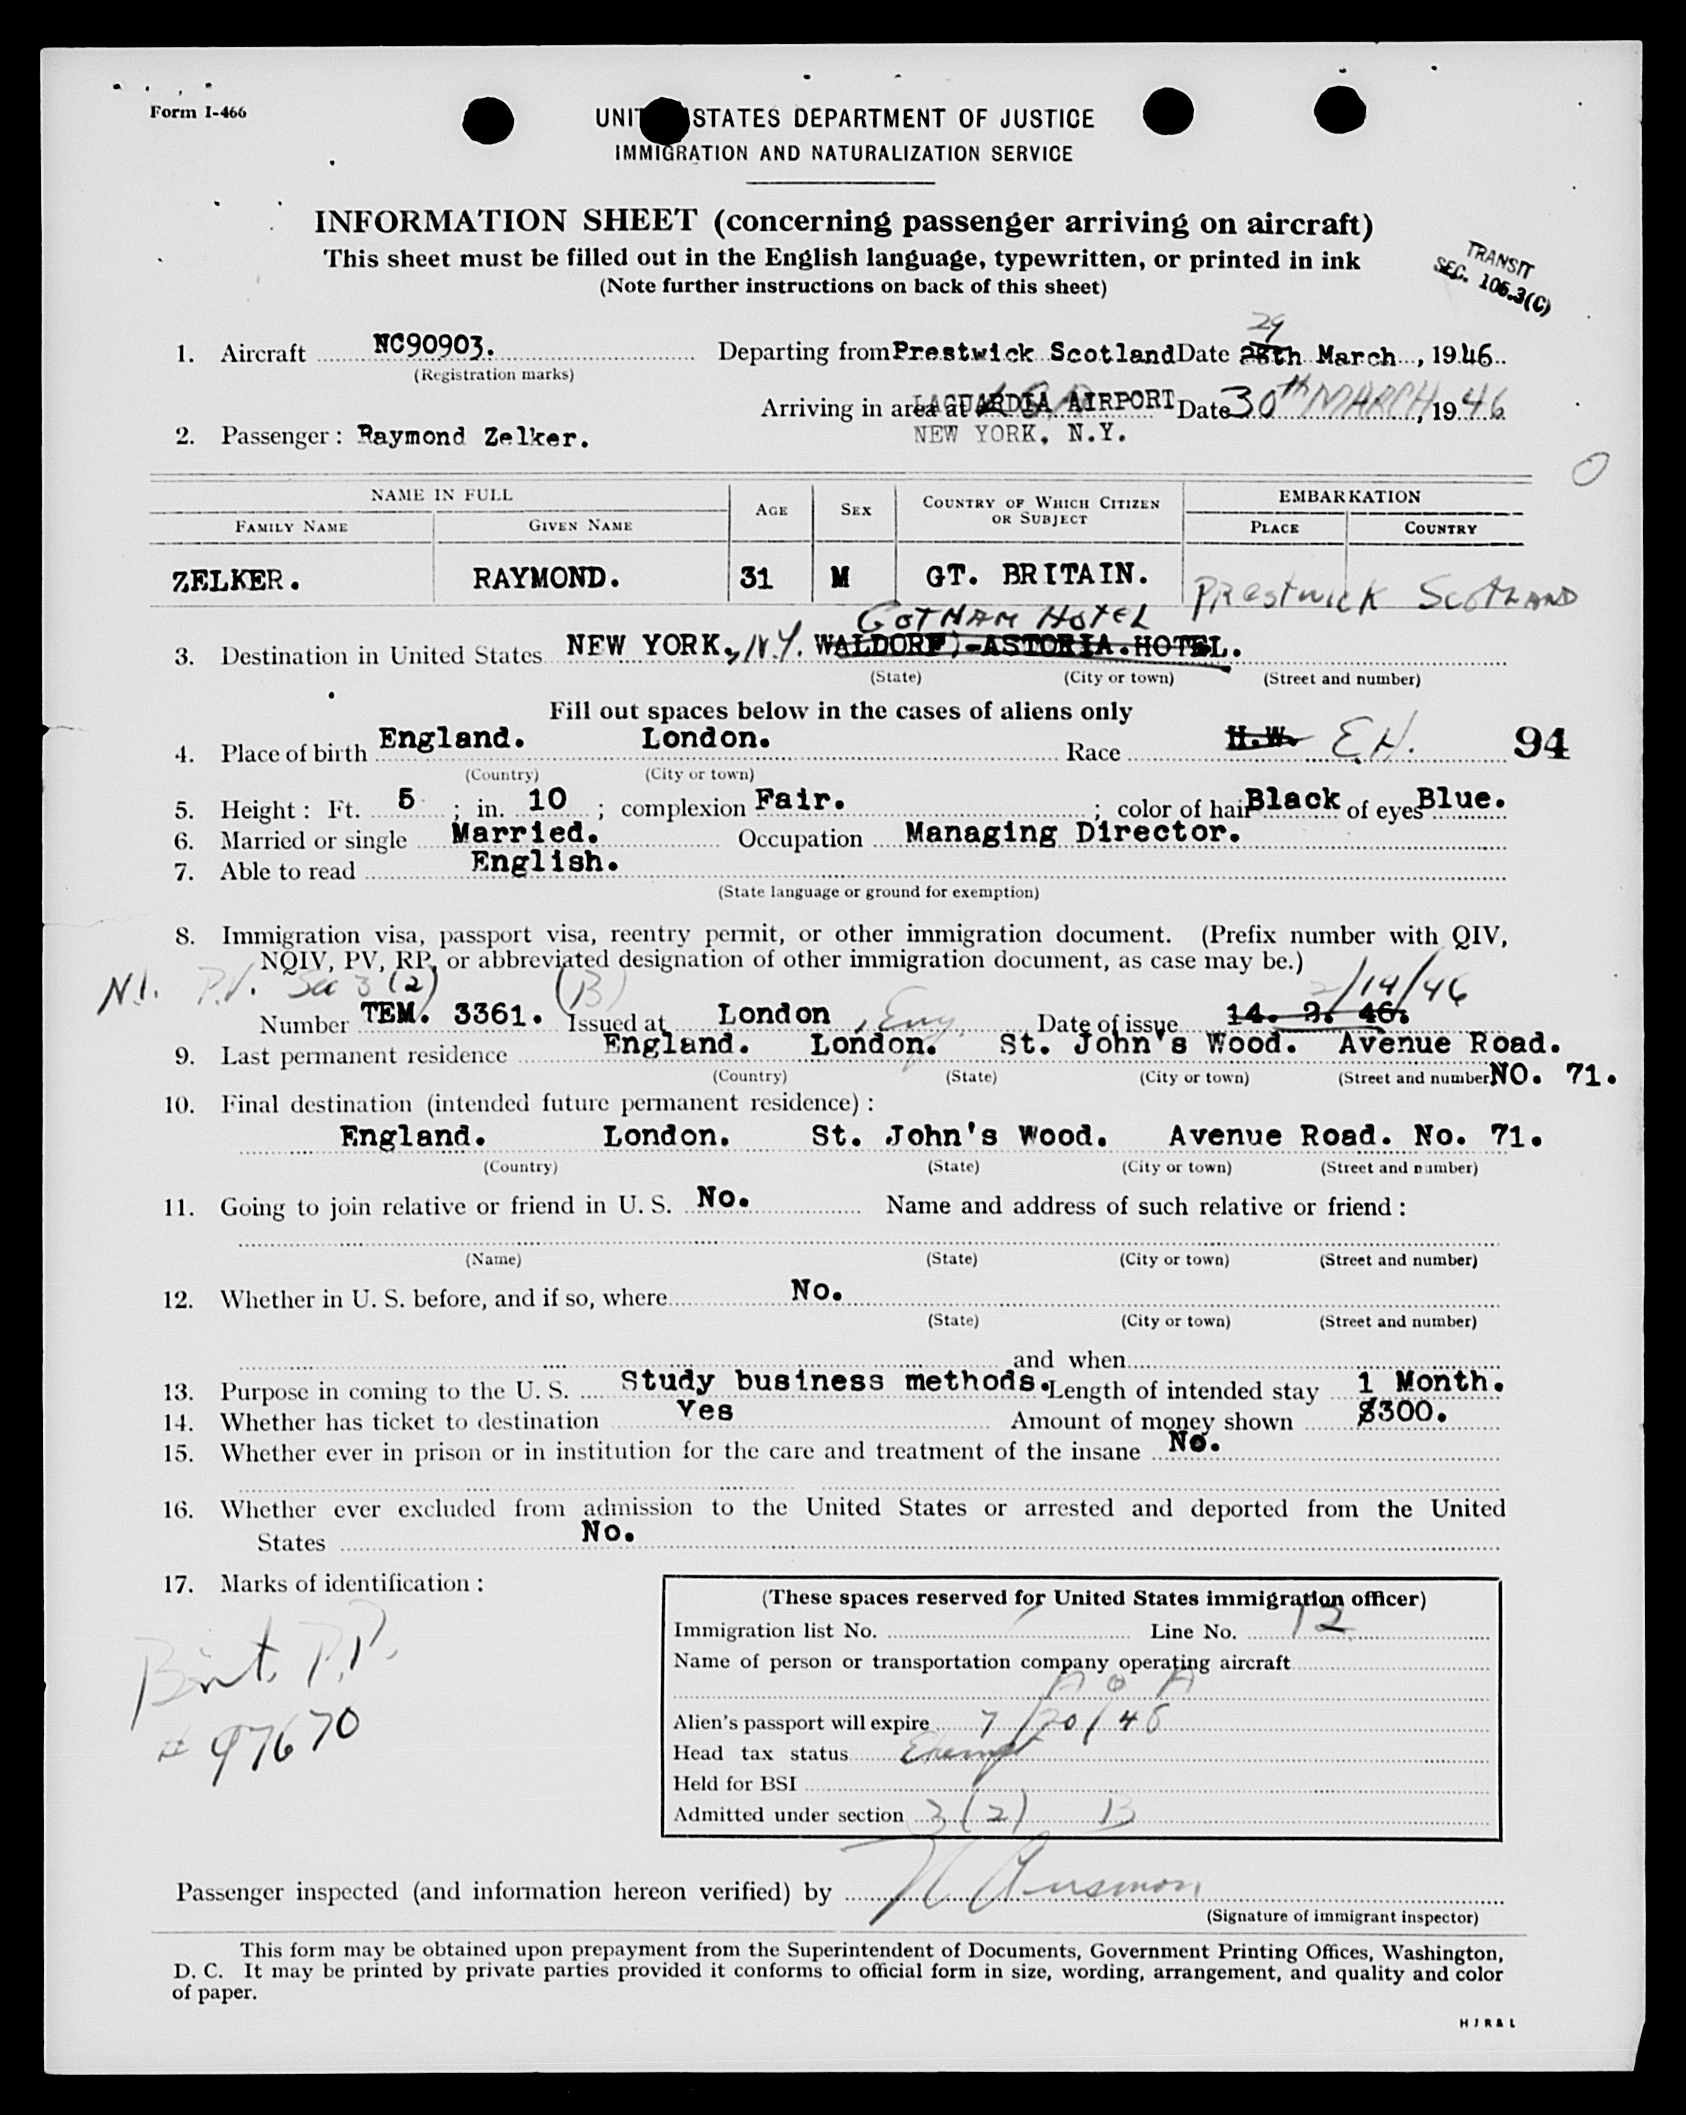 Form I-466
UNITED STATES DEPARTMENT OF JUSTICE
IMMIGRATION AND NATURALIZATION SERVICE
INFORMATION SHEET (concerning passenger arriving on aircraft)
This sheet must be filled out in the English language, typewritten, or printed in ink
(Note further instructions on back of this sheet)
TRANSIT
SEC. 106.3(C)
29
1. Aircraft NC90903. Departing from Prestwick Scotland Date 28th March, 1946.
(Registration marks)
Arriving in area at LAGUARDIA AIRPORT Date 30th MARCH, 1946
NEW YORK, N.Y.
2. Passenger: Raymond Zelker.
NAME IN FULL AGE SEX COUNTRY OF WHICH CITIZEN OR SUBJECT EMBARKATION
FAMILY NAME GIVEN NAME PLACE COUNTRY
ZELKER. RAYMOND. 31 M GT. BRITAIN. Prestwick Scotland
GOTHAM HOTEL
3. Destination in United States NEW YORK, N.Y. WALDORF,-ASTORIA.HOTEL.
(State) (City or town) (Street and number)
Fill out spaces below in the cases of aliens only
4. Place of birth England. London. Race H.W. E.H. 94
(Country) (City or town)
5. Height: Ft. 5; in. 10; complexion Fair.; color of hair Black of eyes Blue.
6. Married or single Married. Occupation Managing Director.
7. Able to read English.
(State language or ground for exemption)
8. Immigration visa, passport visa, reentry permit, or other immigration document. (Prefix number with QIV,
NQIV, PV, RP, or abbreviated designation of other immigration document, as case may be.)
N.I. P.V. Sec 3 (2) (B) 2/14/46
Number TEM. 3361. Issued at London, Eng. Date of issue 14. 2. 46.
9. Last permanent residence England. London. St. John's Wood. Avenue Road.
(Country) (State) (City or town) (Street and number) NO. 71.
10. Final destination (intended future permanent residence):
England. London. St. John's Wood. Avenue Road. No. 71.
(Country) (State) (City or town) (Street and number)
11. Going to join relative or friend in U. S. No. Name and address of such relative or friend:
(Name) (State) (City or town) (Street and number)
12. Whether in U. S. before, and if so, where No.
(State) (City or town) (Street and number)
and when
13. Purpose in coming to the U. S. Study business methods. Length of intended stay 1 Month.
14. Whether has ticket to destination Yes Amount of money shown $300.
15. Whether ever in prison or in institution for the care and treatment of the insane No.
16. Whether ever excluded from admission to the United States or arrested and deported from the United
States No.
17. Marks of identification:
Brit. P.P.
# 97670
(These spaces reserved for United States immigration officer)
Immigration list No. Line No. 12
Name of person or transportation company operating aircraft
A O A
Alien's passport will expire 7/20/46
Head tax status Exempt
Held for BSI
Admitted under section 3 (2) B
Passenger inspected (and information hereon verified) by
(Signature of immigrant inspector)
This form may be obtained upon prepayment from the Superintendent of Documents, Government Printing Offices, Washington,
D. C. It may be printed by private parties provided it conforms to official form in size, wording, arrangement, and quality and color
of paper.
H J R & L